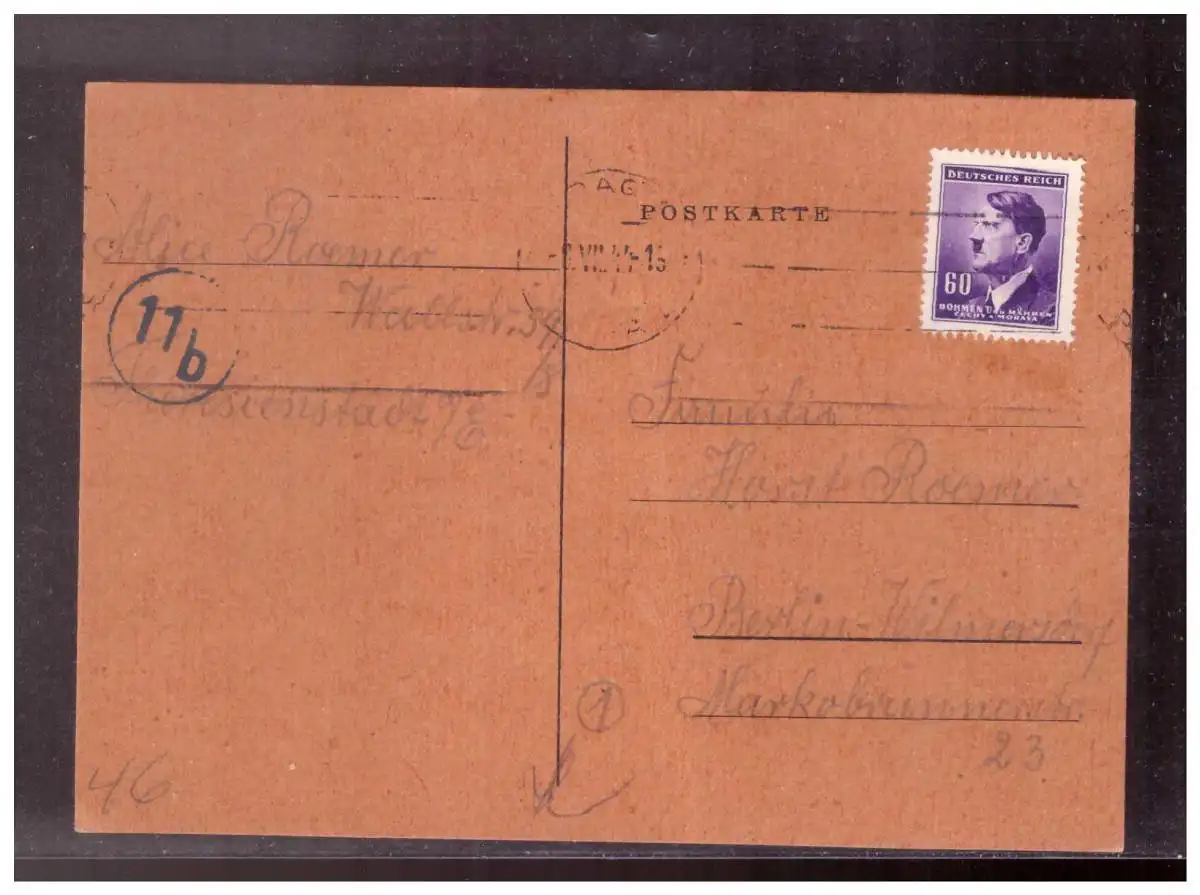 Alice Roemer
Wallstr.
11b
POSTKARTE
DEUTSCHES REICH
60
BÖHMEN U. MÄHREN
ČECHY A MORAVA
Familie
Horst Roemer
Berlin-Wilmersdorf
Markobrunnerstr.
23
1
46